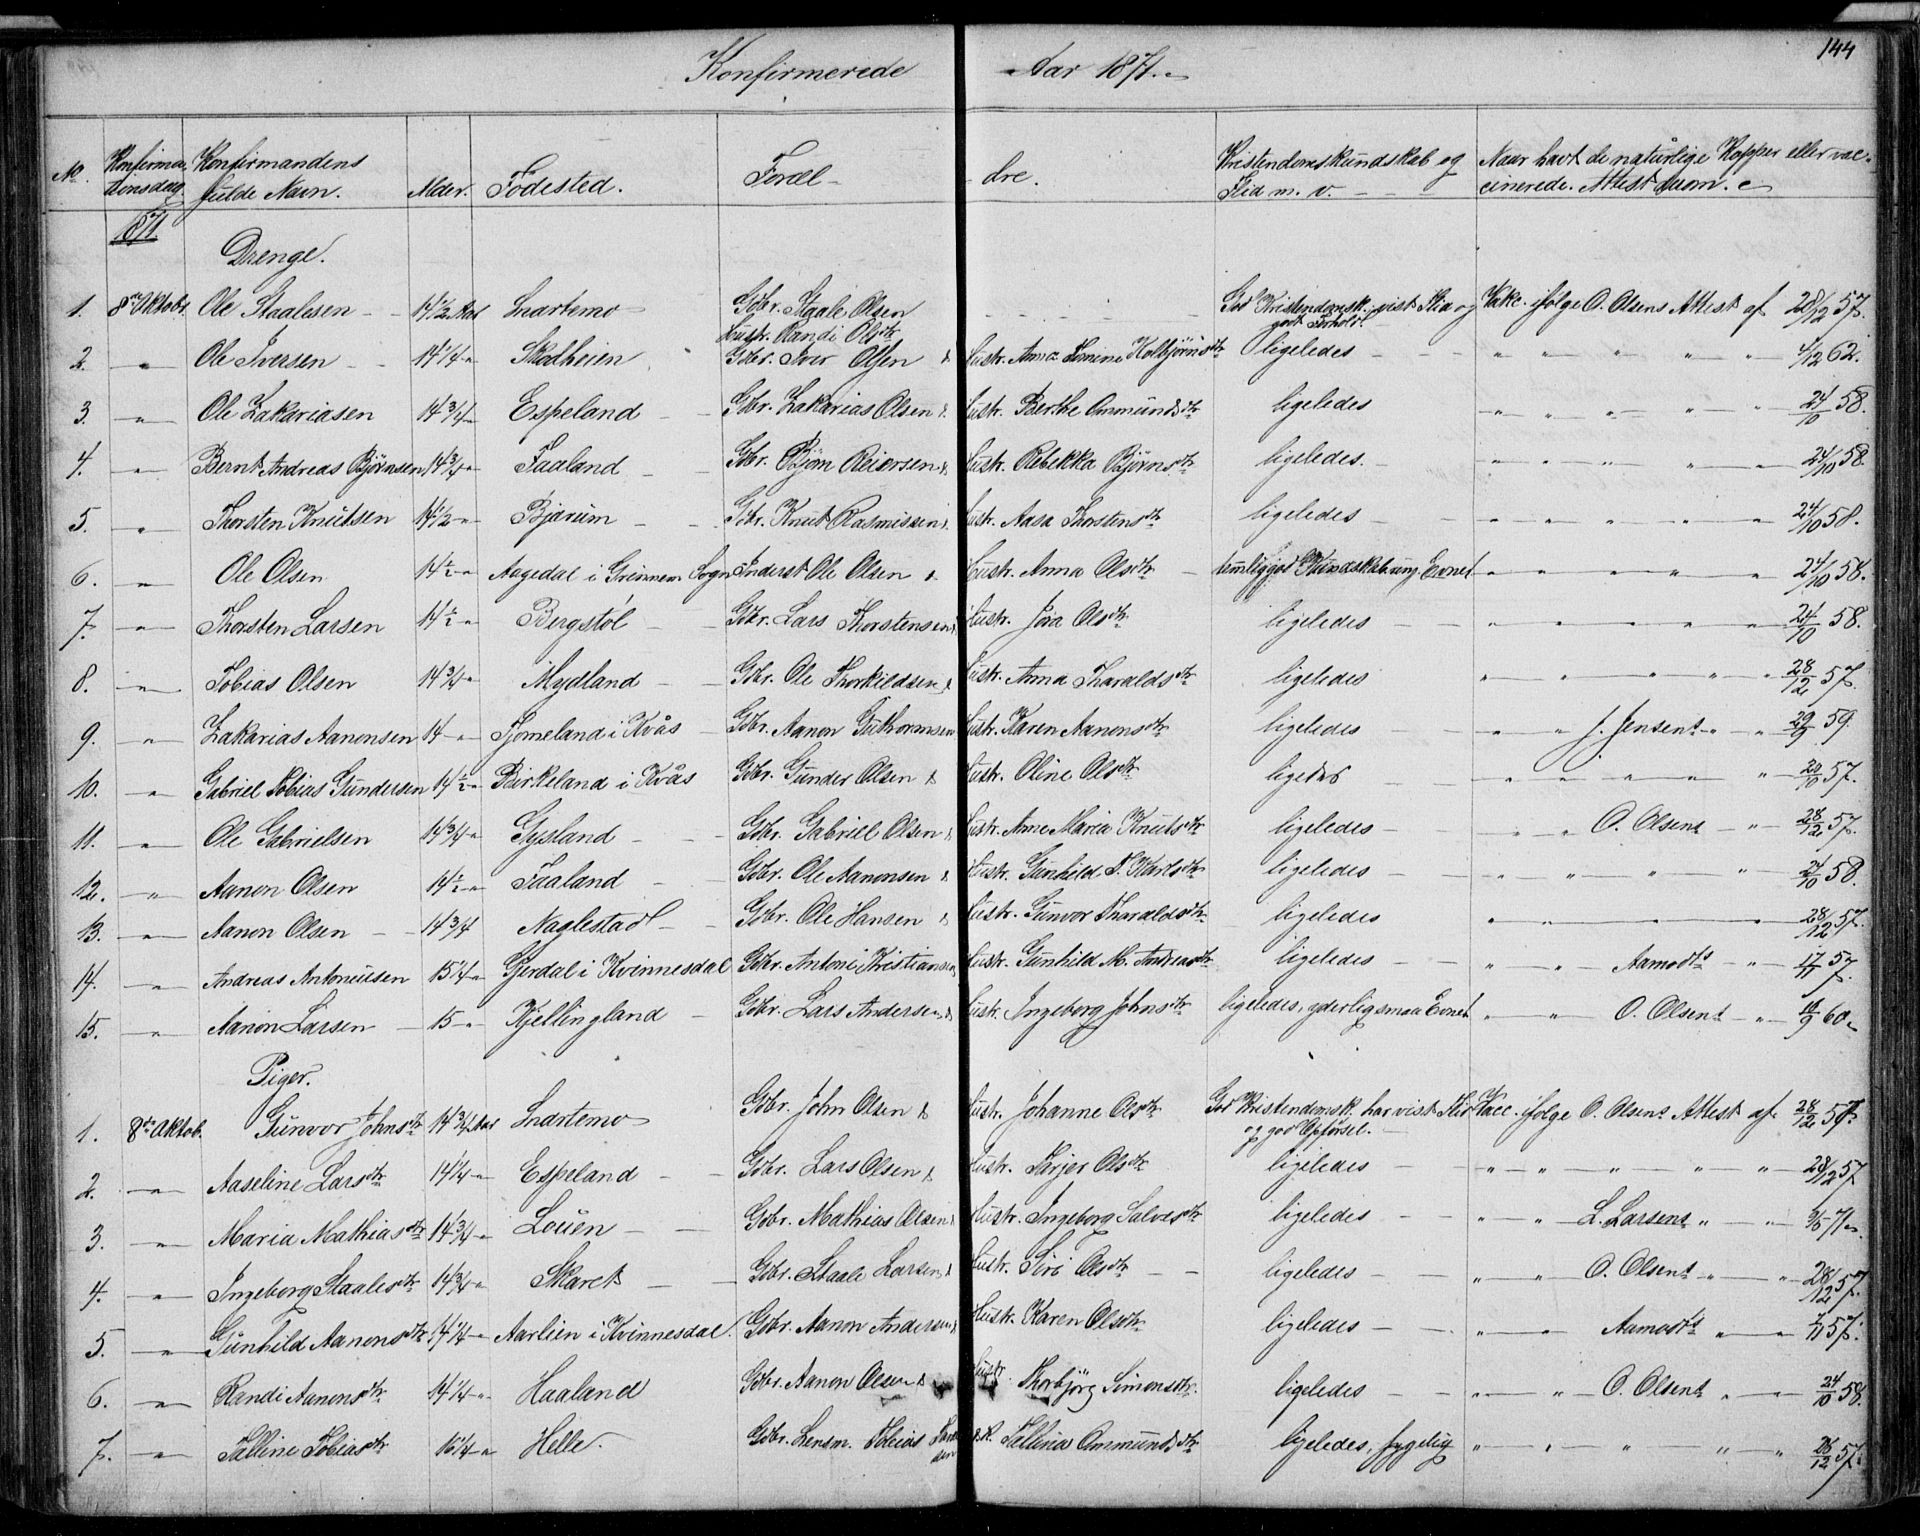 144
Konfirmerede Aar 1871.
No. Konfirmationsdag Konfirmandens fulde Navn. Alder. Födested. Foræl- dre. Kristendomskundskab og Flid m. v. Naar havt de naturlige Kopper eller vaccinerede. Attest derom.
1871.
Drenge.
1. 8de Oktobr. Ole Staalesen 14 1/2 Aar Snartemo Gbr. Staale Olsen Hustr. Randi Olsdtr. God Kristendomsk. vist Flid og godt Forhold. Vakc. ifølge O. Olsens Attest af 28/12 57.
2. " Ole Iversen 14 1/4 " Skodheim Gbr. Iver Olsen & Hustr. Anna Tomine Kolbjörnsdtr. ligeledes " " " " " 4/12 62.
3. " Ole Zakariasen 14 3/4 " Espeland Gbr. Zakarias Olsen & Hustr. Berthe Ommundsdtr. ligeledes " " " " " 24/10 58.
4. " Bernt Andreas Bjørnsen 14 3/4 " Faaland Gbr. Bjørn Reiersen & Hustr. Rebekka Bjørnsdtr. ligeledes. " " " " " 24/10 58.
5. " Thorsten Knutsen 14 1/2 " Bjærum Gbr. Knut Rasmussen & Hustr. Aasa Thorstensdtr. ligeledes " " " " " 24/10 58.
6. " Ole Olsen 14 1/2 " Aagedal i Grinnem Sogn Inderst Ole Olsen & Hustr. Anna Olsdtr. temlig god Kundskab ung Evnet " " " " " 24/10 58.
7. " Thorsten Larsen 14 1/2 " Bergstøl Gbr. Lars Thorstensen & Hustr. Jøra Olsdtr. ligeledes " " " " " 24/10 58.
8. " Tobias Olsen 14 3/4 " Mydland Gbr. Ole Thorkildsen & Hustr. Anna Tharaldsdtr. ligeledes " " " " " 28/12 57.
9. " Zakarias Aanonsen 14 " Fjomeland i Kvås Gbr. Aanon Guthormsen Hustr. Karen Aanonsdtr. ligeledes " " J. Jensens " " 29/9 59.
10. " Gabriel Tobias Gundersen 14 1/2 " Birkeland i Kvås Gbr. Gunder Olsen & Hustr. Oline Olsdtr. ligedes " " " " " 20/10 57.
11. " Ole Gabrielsen 14 3/4 " Gysland Gbr. Gabriel Olsen & Hustr. Anne Maria Knutsdtr. ligeledes " " O. Olsens " 28/12 57.
12. " Aanon Olsen 14 1/2 " Faaland Gbr. Ole Aanonsen & Hustr. Gunhild T. Karlsdtr. ligeledes " " " " 24/10 58.
13. " Aanon Olsen 14 3/4 Naglestad Gbr. Ole Hansen & Hustr. Gunvor Tharaldsdtr. ligeledes " " " " 28/12 57.
14. " Andreas Antoniusen 15 1/4 " Gjerdal i Kvinnesdal Gbr. Antoni Kristiansen Hustr. Gunhild M. Andreasdtr. ligeledes " " Aamodts " 17/11 57.
15. " Aanon Larsen 15 " Kjellingland Gbr. Lars Andersen & Hustr. Ingeborg Johnsdtr. ligeledes, yderlig smaa Evnet " " O. Olsens " 16/9 60.
Piger.
1. 8de Oktob. Gunvor Johnsdtr. 14 3/4 Aar Snartemo Gbr. John Olsen & Hustr. Johanne Olsdtr. God Kristendomsk. har vist Flid og god Opførsel. Vacc. ifølge O. Olsens Attest af 28/12 57.
2. " Aaseline Larsdtr. 14 1/4 " Espeland Gbr. Lars Olsen & Hustr. Tarjer Olsdtr. ligeledes " " " " " 28/12 57
3. " Maria Mathiasdtr. 14 3/4 " Louen Gbr. Mathias Olsen & Hustr. Ingeborg Salvesdtr. ligeledes " " L. Larsens " " 5/6 71.
4. " Ingeborg Staalesdtr. 14 3/4 " Skaret Gbr. Staale Larsen & Hustr. Siri Olsdtr. ligeledes " " O. Olsens " " 28/12 57.
5. " Gunhild Aanonsdtr. 14 1/4 " Aarlien i Kvinnesdal. Gbr. Aanon Andersen & Hustr. Karen Olsdtr. ligeledes " " Aamodts " " 7/11 57.
6. " Randi Aanonsdtr. 14 1/4 " Haaland Gbr. Aanon Olsen & Hustr. Thorbjörg Simonsdtr. ligeledes " " O. Olsens " " 24/10 58.
7. " Talline Tobiasdtr. 16 1/4 " Helle. Gbr. Lensm. Tobias Tallina Ommundsdtr. ligeledes, sygelig " " " " " 28/12 57.